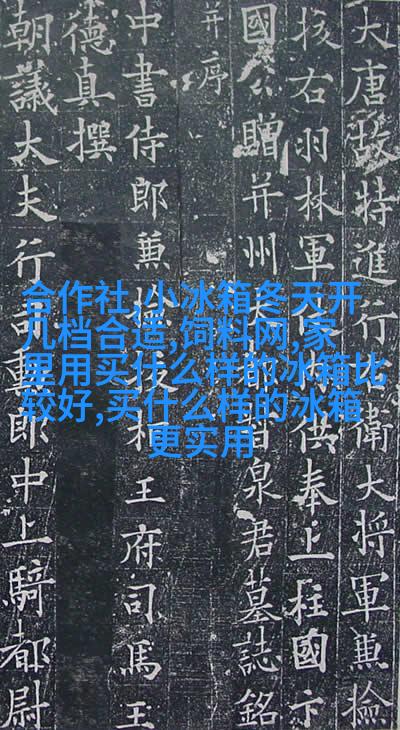 大唐故特進行衛大將軍兼檢
挍右羽林軍供奉上柱國卞
國公贈并州大泉君墓誌銘
并序
中書侍郎兼檢挍相王府司馬王
德真撰
朝議大夫行司勳郎中上騎都尉
合作社,小冰箱冬天开
几档合适,饲料网,家
里用买什么样的冰箱比
较好,买什么样的冰箱
更实用